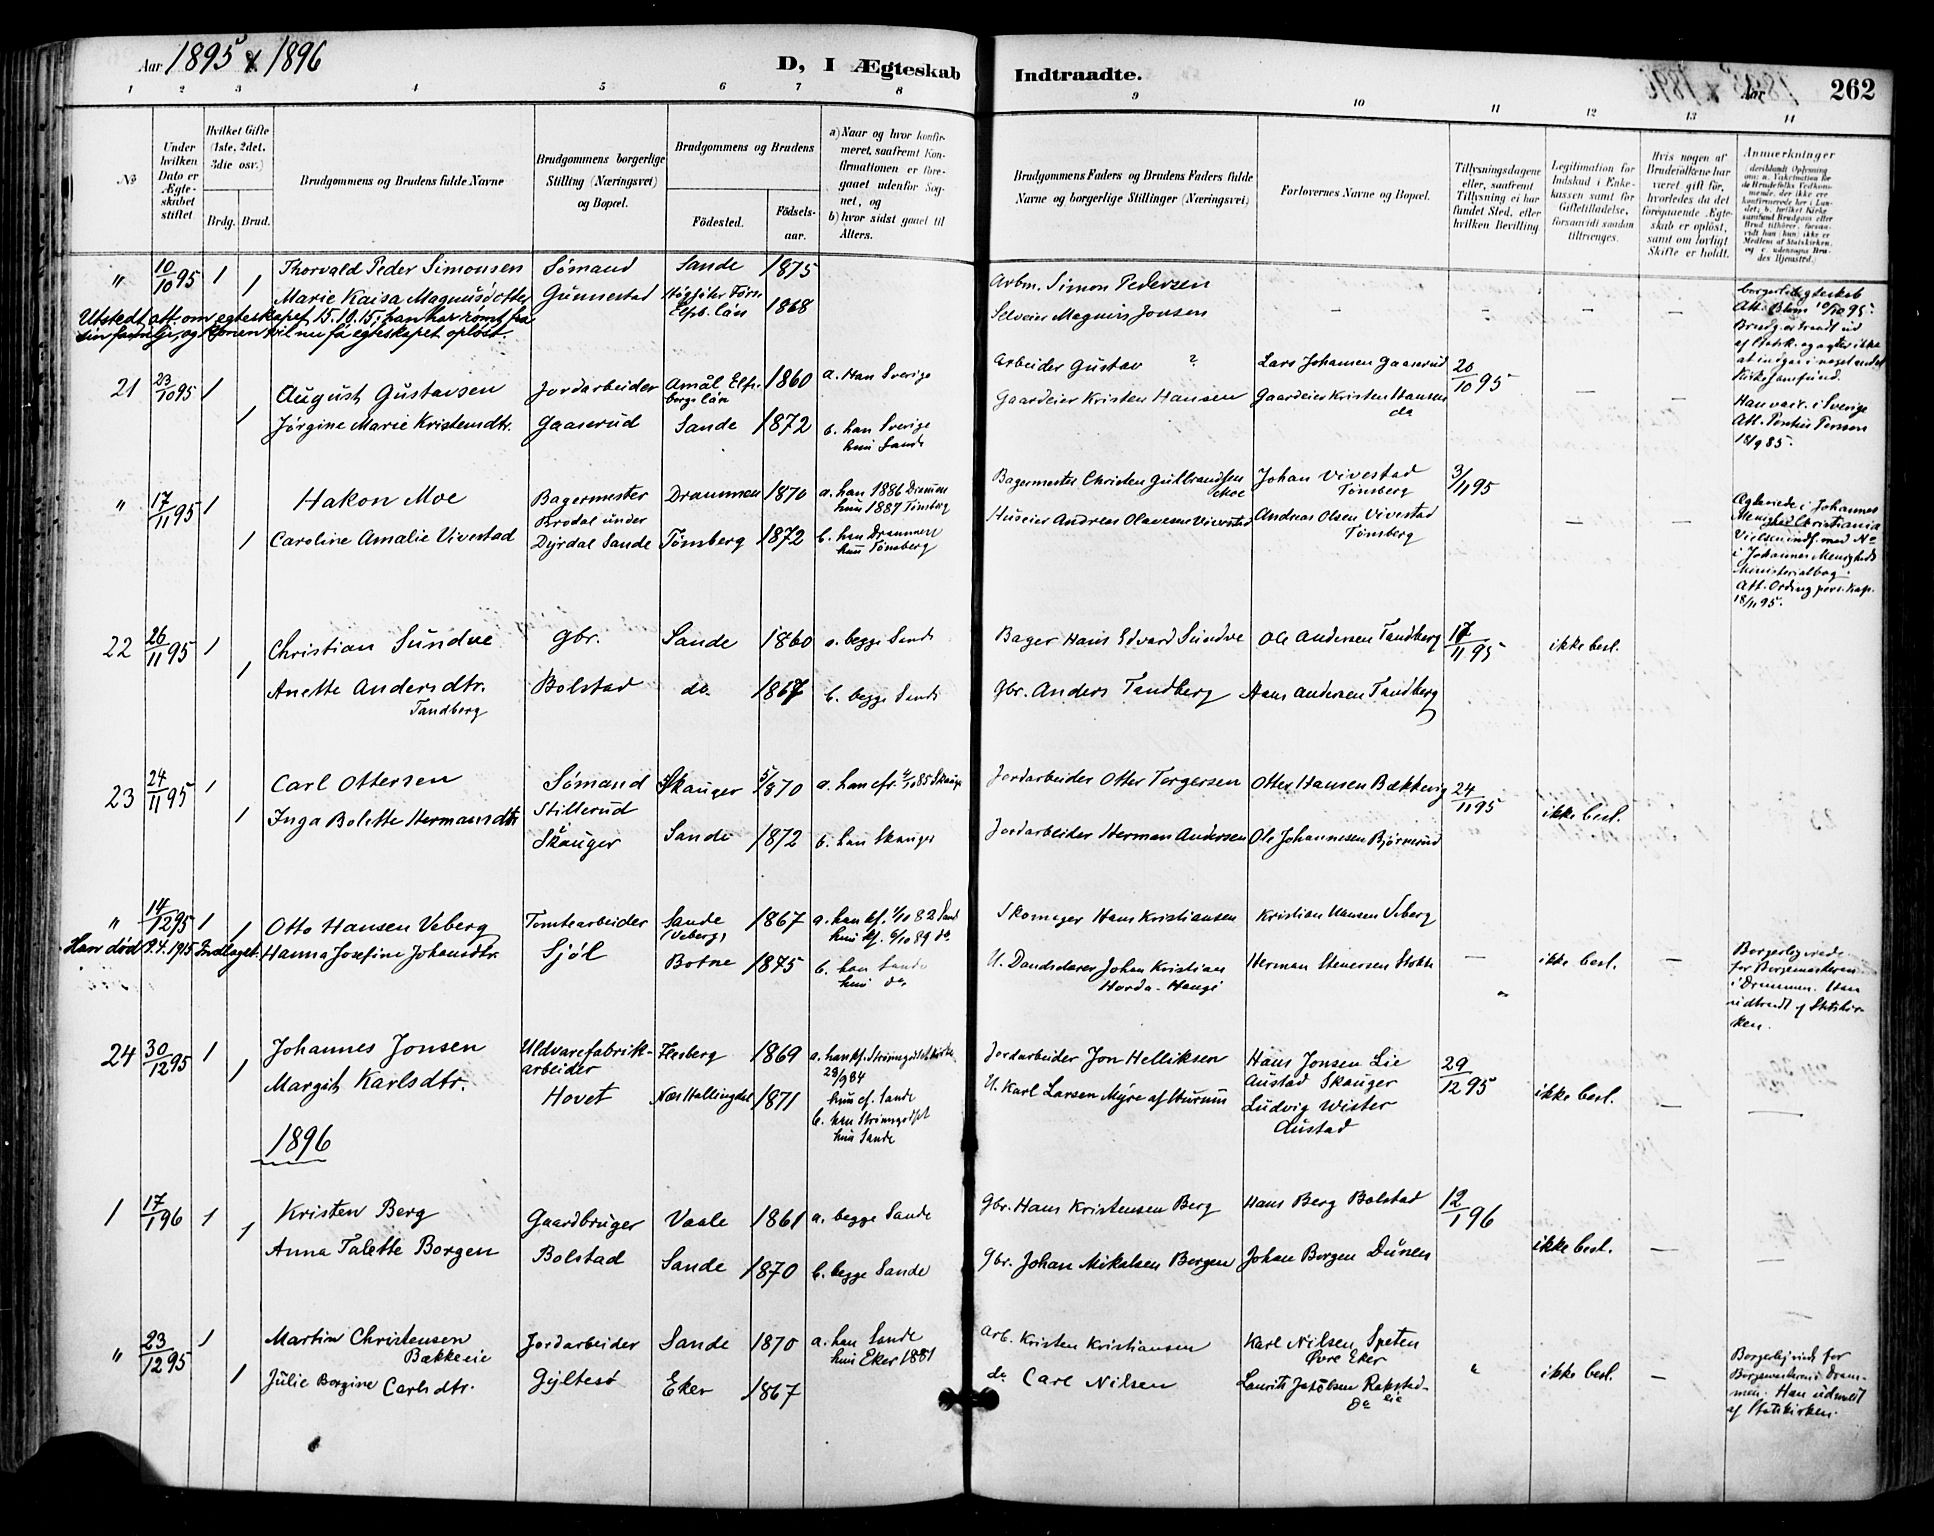 Aar 1895 & 1896
D, I Ægteskab Indtraadte.
Aar
262
1 2 3 4 5 6 7 8 9 10 11 12 13 14
No
Under hvilken Dato er Ægteskabet stiftet.
Hvilket Gifte (1ste, 2det, 3die osv.)
Brdg. Brud.
Brudgommens og Brudens fulde Navne
Brudgommens borgerlige Stilling (Næringsvei) og Bopæl.
Brudgommens og Brudens
Fødested.
Fødselsaar.
a) Naar og hvor konfirmeret, saafremt Konfirmationen er foregaaet udenfor Sognet, og
b) hvor sidst gaaet til Alters.
Brudgommens Faders og Brudens Faders fulde Navne og borgerlige Stillinger (Næringsvei)
Forlovernes Navne og Bopæl.
Tillysningsdagene eller, saafremt Tillysning ei har fundet Sted, efter hvilken Bevilling
Legitimation for Indskud i Enkekassen samt for Giftetilladelse, forsaavidt saadan tiltrænges.
Hvis nogen af Brudefolkene har været gift før, hvorledes da det foregaaende Ægteskab er opløst, samt om lovligt Skifte er holdt.
Anmerkninger
" 10/10 95 1 1 Thorvald Peder Simonsen Sømand Sande 1875 Arbm. Simon Pedersen
Marie Kaisa Magnusdotter Gunnestad Elfsb. län 1868 Selveier Magnus Jonsen – – – –
Utstedt att. om egteskapet 15.10.15; han har rømt fra
sin familje, og konen vil nu få egteskapet opløst.
borgerlig Egteskab
Att. Blom 10/10 95.
Brudg. er traadt ud
af Statsk. og agter ikke
at indgaa i noget andet
Kirkesamfund.
21 23/10 95 1 1 August Gustavsen Jordarbeider Amål Elfsborgs län 1860 a. Han Sverige Arbeider Gustav ? Lars Johansen Gaaserud 20/10 95 – –
Jørgine Marie Kristensdtr. Gaaserud Sande 1872 b. han Sverige
hun Sande
Gaardeier Kristen Hansen Gaardeier Kristen Hansen
do
Han vacc. i Sverige
Att. Pontus Persson
18/9 85.
" 17/11 95 1 1 Hakon Moe Bagermester Drammen 1870 a. han 1886 Drammen
hun 1887 Tønsberg
Bagermester Christen Gulbrandsen
Moe
Johan Vivestad
Tønsberg
3/11 95 – –
Caroline Amalie Vivestad Brodal under
Dyrdal Sande Tønsberg 1872 b. han Drammen
hun Tønsberg
Huseier Andreas Olavesen Vivestad Andreas Olsen Vivestad
Tønsberg
Egteviede i Johannes
Menighed Christiania
Vielsen indf. med No
i Johannes Menigheds
Ministerialbog.
Att. Ording pers. kap.
18/11 95.
22 26/11 95 1 1 Christian Sundve Gbr. Sande 1860 a. begge Sande Bager Hans Edvard Sundve Ole Andersen Tandberg 17/11 95 ikke besl.
Anette Andersdtr.
Tandberg
Bolstad do. 1867 b. begge Sande Gbr. Anders Tandberg Hans Andersen Tandberg
23 24/11 95 1 1 Carl Ottersen Sømand Skauger 5/1870 a. han cfr. 4/10 85 Skauger Jordarbeider Otter Torgersen Otter Hansen Bækkevig 24/11 95 ikke besl.
Inga Bolette Hermansdtr Stillerud
Skauger Sande 1872 b. han Skauger Jordarbeider Herman Andersen Ole Johannesen Bjørnerud
" 14/12 95 1 1 Otto Hansen Veberg Tomtearbeider Sande
(Veberg) 1867 a. han kf. 1/10 82 Sande
hun kf. 6/10 89 do.
Skomager Hans Kristiansen Kristian Hansen Veberg
Han død 9.4.1915 Indtaget. Hanna Josefine Johansdtr. Sjøl Botne 1875 b. han Sande
hun do.
U. Johan Kristian
Horda-Haugi
Herman Stenersen – ikke besl. –
Borgerlig viede
for Borgemesteren
i Drammen. Han
udtraadt af Statskirken.
24 30/12 95 1 1 Johannes Jonsen Uldvarefabrikarbeider Flesberg 1869 a. han kf. Strømsgodset Kirke
28/9 84
hun cf. Sande
Jordarbeider Jon Helliksen Hans Jonsen Lie
Austad Skauger
29/12 95 ikke besl. – –
Margit Karlsdtr. Hovet Næs Hallingdal 1871 b. han Strømsgodset
hun Sande
U. Karl Larsen Myre af Hurum Ludvig Wister
Austad
1896
1 17/1 96 1 1 Kristen Berg Gaardbruger Vaale 1861 a. begge Sande Gbr. Hans Kristensen Berg Hans Berg Bolstad 12/1 96 ikke besl. – –
Anna Talette Borgen Bolstad Sande 1870 b. begge Sande Gbr. Johan Mikalsen Borgen Johan Borgen Dunen
" 23/12 95 1 1 Martin Christensen
Bækkeeie
Jordarbeider Sande 1870 a. han Sande
hun Eker 1881
Arb. Kristen Kristiansen Karl Nilsen Speten
Øvre Eker
" ikke besl. –
Julie Borgine Carlsdtr. Gyltesø Eker 1867 do Carl Nilsen Laurits Jakobsen Rakstadeie
do
Borgerlig viet for
Borgemesteren i Drammen. Han udmeldt
af Statskirken.